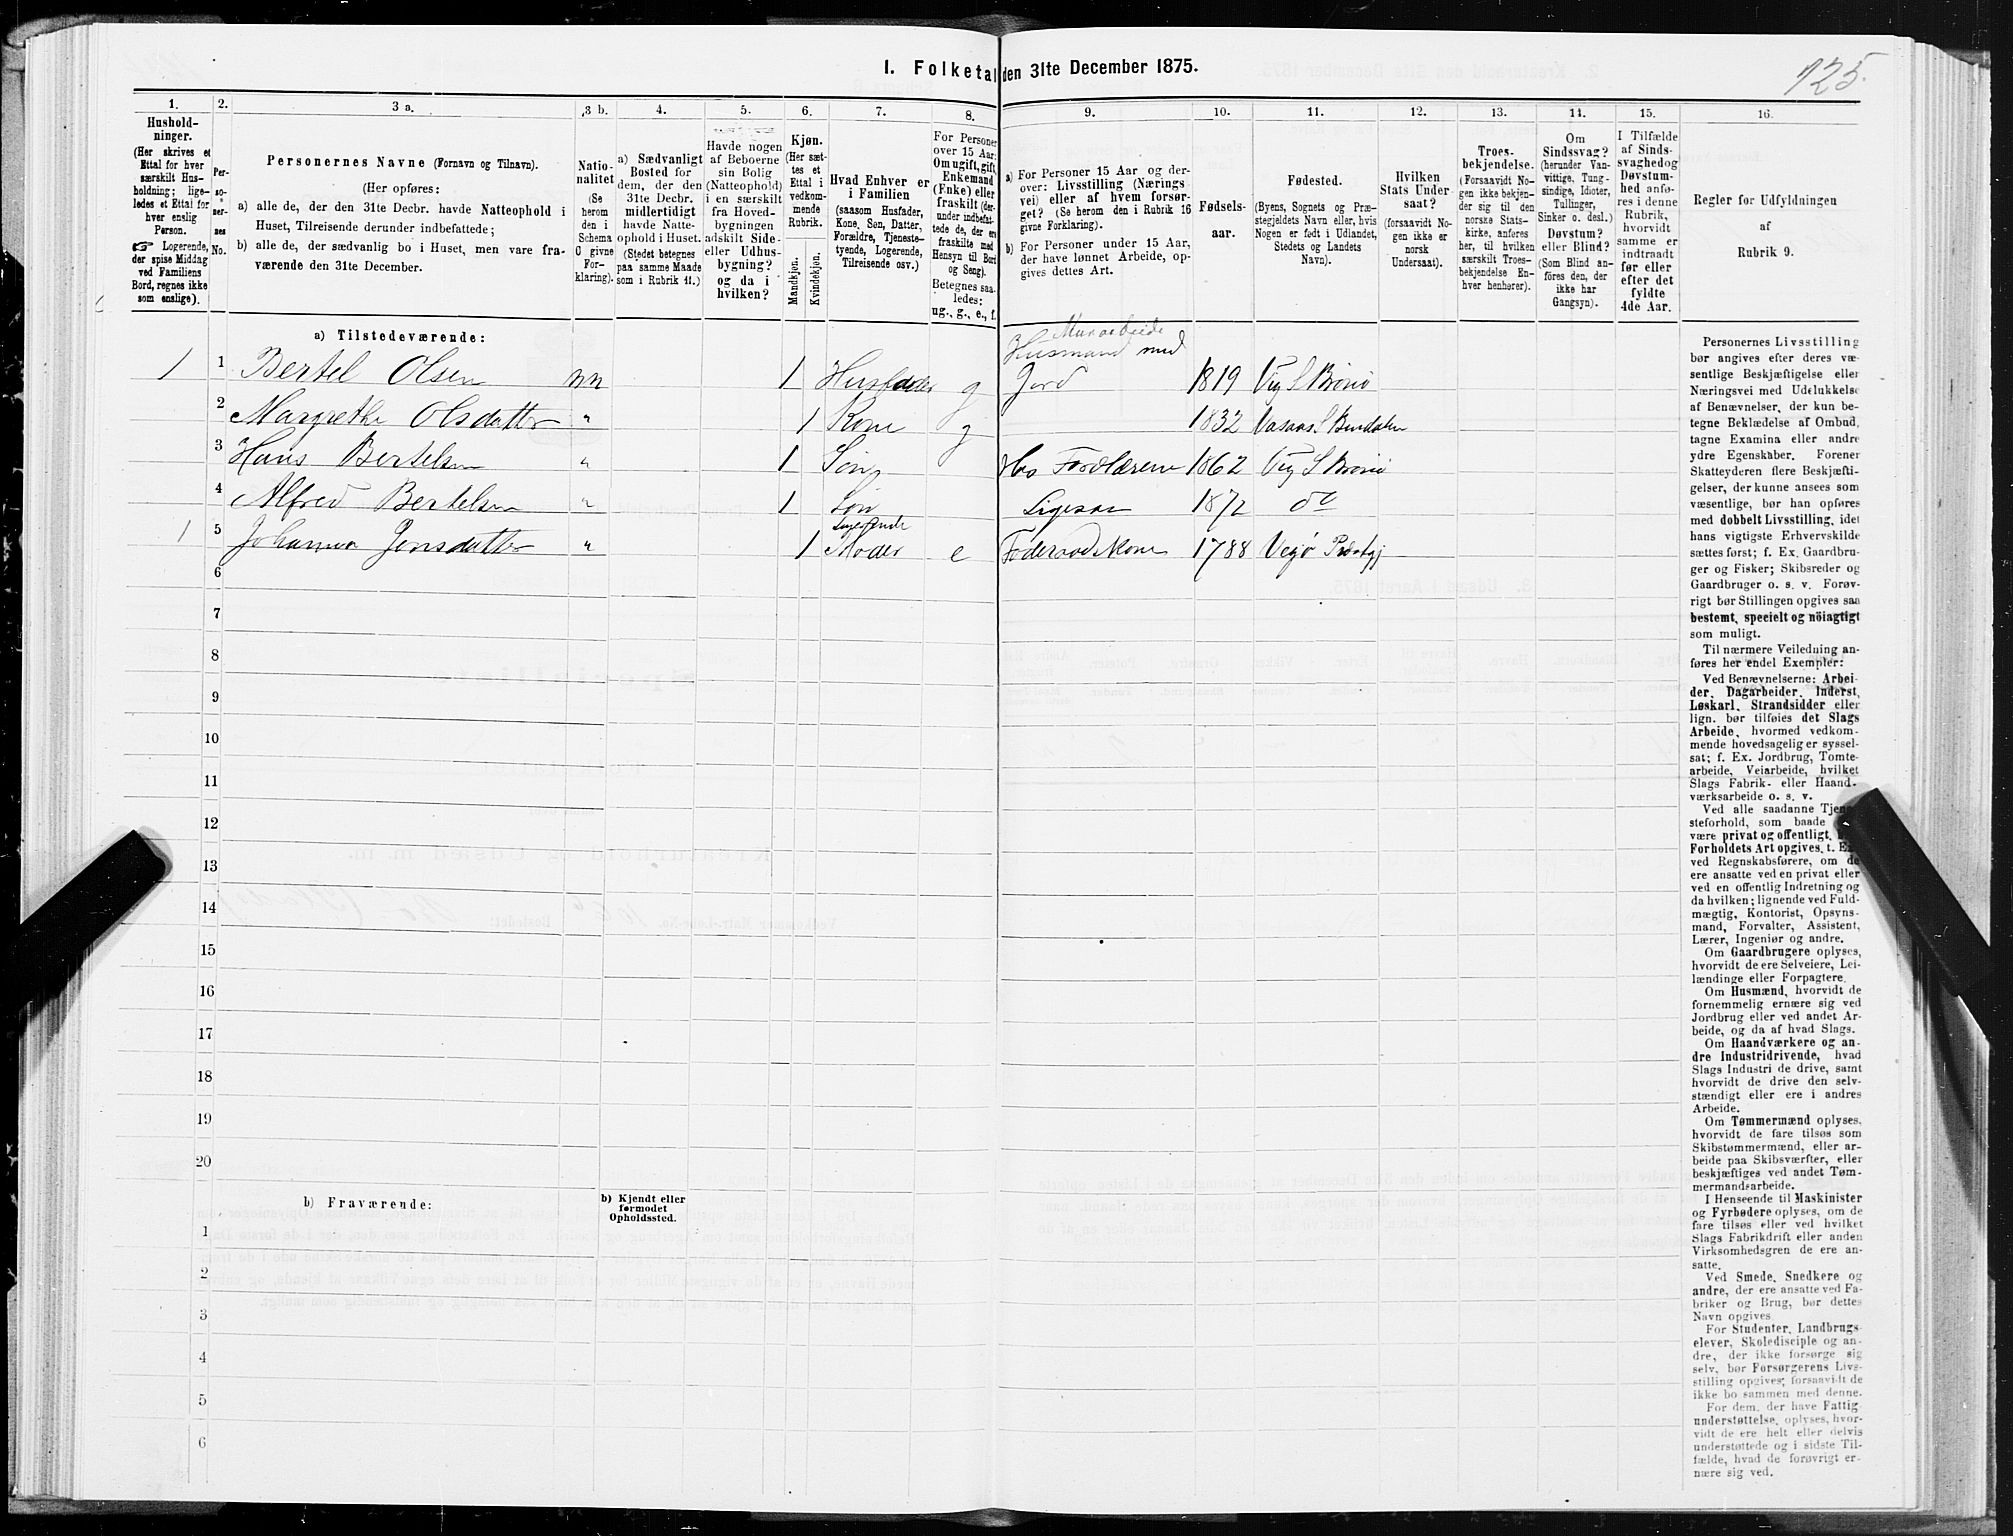 I. Folketal den 31te December 1875.
125.
1.
2.
3 a.
3 b.
4.
5.
6.
7.
8.
9.
10.
11.
12.
13.
14.
15.
16.
Hushold-
ninger.
(Her skrives et
Ettal for hver
særskilt Hus-
holdning; lige-
ledes et Ettal for
hver enslig
Person.
☞ Logerende,
der spise Middag
ved Familiens
Bord, regnes ikke
som enslige).
Per-
so-
ner-
nes
No.
Personernes Navne (Fornavn og Tilnavn).
(Her opføres:
a) alle de, der den 31te Decbr. havde Natteophold i
Huset, Tilreisende derunder indbefattede;
b) alle de, der sædvanlig bo i Huset, men vare fra-
værende den 31te December.
Natio-
nalitet
(Se
herom
den i
Schema
6 givne
For-
klaring).
a) Sædvanligt
Bosted for
dem, der den
31te Decbr.
midlertidigt
havde Natte-
ophold i Huset.
(Stedet betegnes
paa samme Maade
som i Rubrik 11.)
Havde nogen
af Beboerne
sin Bolig
(Natteophold)
i en særskilt
fra Hoved-
bygningen
adskilt Side-
eller Udhus-
bygning?
og da i
hvilken?
Kjøn.
(Her sæt-
tes et
Ettal i
vedkom-
mende
Rubrik.
Mandkjøn.
Kvindekjøn.
Hvad Enhver er
i Familien
(saasom Husfader,
Kone, Søn, Datter,
Forældre, Tjeneste-
tyende, Logerende,
Tilreisende osv.)
For Personer
over 15 Aar:
Om ugift, gift,
Enkemand
(Enke) eller
fraskilt (der-
under indbefat-
tede de, der ere
fraskilte med
Hensyn til Bord
og Seng).
Betegnes saa-
ledes:
ug., g., e., f.
a) For Personer 15 Aar og der-
over: Livsstilling (Nærings
vei) eller af hvem forsør-
get? (Se herom den i Rubrik 16
givne Forklaring).
b) For Personer under 15 Aar,
der have lønnet Arbeide, op-
gives dettes Art.
Fødsels-
aar.
Fødested.
(Byens, Sognets og Præ-
stegjeldets Navn eller, hvis
Nogen er født i Udlandet,
Stedets og Landets
Navn).
Hvilken
Stats Under-
saat?
(forsaavidt No-
gen ikke er
norsk
Undersaat).
Troes-
bekjendelse.
(Forsaavidt No-
gen ikke bekjen-
der sig til den
norske Stats-
kirke, anføres
her, til hvilken
særskilt Troes-
bekjendelse En-
hver henhører).
Om
Sindssvag?
(herunder Van-
vittige, Tung-
sindige, Idioter,
Tullinger,
Sinker o. desl.)
Døvstum?
eller Blind?
(Som Blind an-
føres den, der
ikke har
Gangsyn).
I Tilfælde
af Sinds-
svaghed og
Døvstum-
hed anfø-
res i denne
Rubrik,
hvorvidt
samme er
indtraadt
før eller
efter det
fyldte
4de Aar.
Regler for Udfyldningen
af
Rubrik 9.
a) Tilstedeværende:
Murarbeide
Husmand med
1 1 Bertel Olsen nn 1 Husfader g Jord 1819 Vig S Brønø
2 Margrethe Olsdatter " 1 Kone g 1832 Vasaas S Bindalen
3 Hans Bertelsen " 1 Søn Hos Forældrene 1862 Vig S Brønø
4 Alfred Bertelsen " 1 Søn Ligesaa 1872 do
Logerende
1 5 Johanna Jensdatter " 1 Moder e Føderaadskone 1788 Vegø Præstgj
6
7
8
9
10
11
12
13
14
15
16
17
18
19
20
b) Fraværende:
b) Kjendt eller
formodet
Opholdssted.
1
2
3
4
5
6
Personernes Livsstilling
bør angives efter deres væ-
sentlige Beskjæftigelse eller
Næringsvei med Udelukkelse
af Benævnelser, der kun be-
tegne Beklædelse af Ombud,
tagne Examina eller andre
ydre Egenskaber. Forener
Skatteyderen flere Beskjæfti-
gelser, der kunne ansees som
væsentlige, bør han opføres
med dobbelt Livsstilling, idet
hans vigtigste Erhvervskilde
sættes først; f. Ex. Gaardbru-
ger og Fisker; Skibsreder og
Gaardbruger o. s. v. Forøv-
rigt bør Stillingen opgives saa
bestemt, specielt og nöiagtigt
som muligt.
Til nærmere Veiledning an-
føres her endel Exempler:
Ved Benævnelserne: Arbei-
der, Dagarbeider, Inderst,
Løskarl, Strandsidder eller
lign. bør tilføies det Slags
Arbeide, hvormed vedkom-
mende hovedsagelig er syssel-
sat; f. Ex. Jordbrug, Tomte-
arbeide, Veiarbeide, hvilket
Slags Fabrik- eller Haand-
værksarbeide o. s. v.
Ved alle saadanne Tjene-
steforhold, som baade
være privat og offentligt,
Forholdets Art opgives, t. Ex
ved Regnskabsførere, om de
ere ansatte ved en privat eller
ved en offentlig Indretning og
da hvilken; lignende ved Fuld-
mægtig, Kontorist, Opsyns-
mand, Forvalter, Assistent,
Lærer, Ingeniør og andre.
Om Gaardbrugere oplyses,
hvorvidt de ere Selveiere, Lei-
lændinge eller Forpagtere.
Om Husmænd, hvorvidt de
fornemmelig ernære sig ved
Jordbrug eller ved andet Ar-
beide, og da af hvad Slags.
Om Haandværkere og an-
dre Industridrivende, hvad
Slags Industri de drive, samt
hvorvidt de drive den selv-
stændigt eller ere i andres
Arbeide.
Om Tømmermænd oplyses,
hvorvidt de fare tilsøs som
Skibstømmermænd, eller ar-
beide paa Skibsværfter, eller
beskjæftiges ved andet Tøm-
mermandsarbeide.
I Henseende til Maskinister
og Fyrbødere oplyses, om de
fare tilsøs eller ved hvilket
Slags Fabrikdrift eller anden
Virksomhedsgren de ere an-
satte.
Ved Smede, Snedkere og
andre, der ere ansatte ved Fa-
briker og Brug, bør dettes
Navn opgives.
For Studenter, Landbrugs-
elever, Skoledisciple og an-
dre, der ikke forsørge sig
selv, bør Forsørgerens Livs-
stilling opgives; forsaavidt de
ikke bo sammen med denne.
For dem, der have Fattig-
understøttelse, oplyses, hvor-
vidt de ere helt eller delvis
understøttede og i sidste Til-
fælde, hvad de forøvrigt er-
nære sig ved.